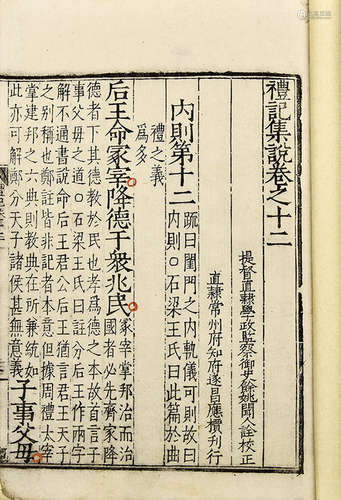 禮記集說卷之十二
提督直隸學政監察御史餘姚聞人詮校正
直隸常州府知府遂昌應檟刊行
內則第十二
疏曰閨門之內軌儀可則故曰
內則○石梁王氏曰此篇於曲
禮之義
為多
后王命冢宰降德于衆兆民
冢宰掌邦治而治
國者必先齊家降
德者下其德教於民也孝爲德之本故首言子
事父母之道○石梁王氏曰註分后王作兩字
解不通書說命后王君公后王猶言君王天子
之別稱也鄭註皆非記者本意但據周禮太宰
掌建邦之六典則教典在所兼統如
此亦可解鄭分天子諸侯甚無意義
子事父母